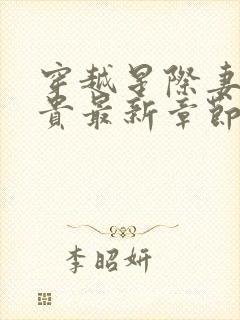 穿越星際妻
貴最新章節
李昭妍